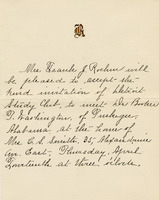 Mrs Frank J. Rodin will
be pleased to accept the
kind invitation of Detroit
Study Club, to meet Dr Booker
T. Washington, of Tuskegee,
Alabama, at the home of
Mrs C. S. Smith, 35, Alexandrine
Av. East, Thursday, April
Fourteenth at three o'clock.